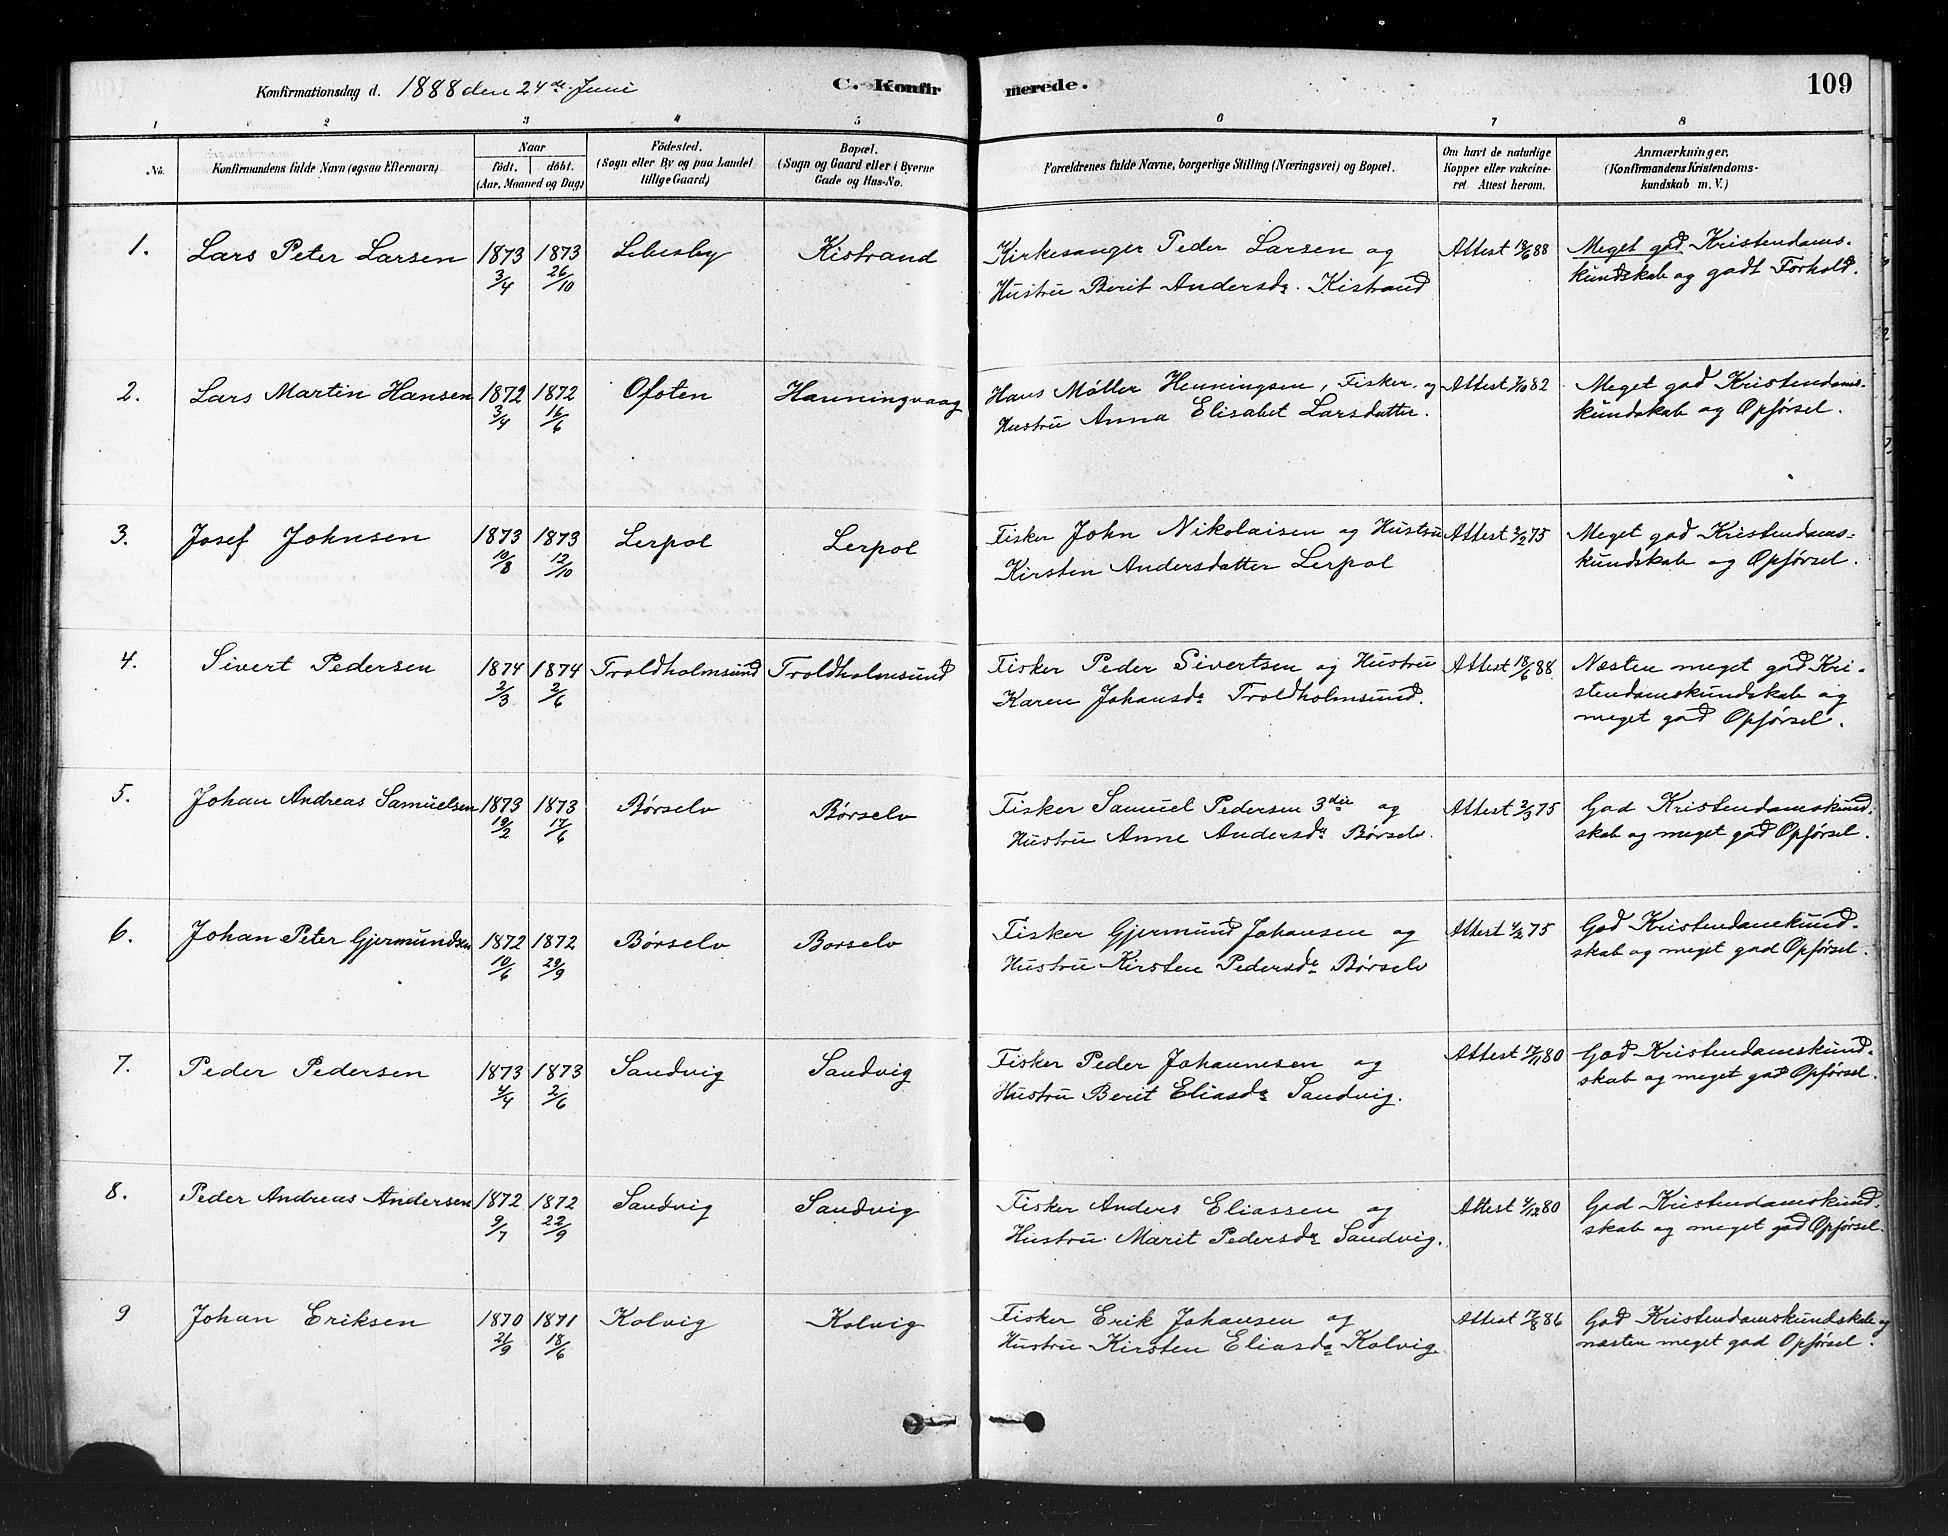 Konfirmationsdag d. 1888 den 24de Juni C. Konfirmerede. 109
1 2 3 4 5 6 7 8
No. Konfirmandens fulde Navn (ogsaa Efternavn). Naar födt. döbt. (Aar, Maaned og Dag) Födested. (Sogn eller By og paa Landet tillige Gaard) Bopæl. (Sogn og Gaard eller i Byerne Gade og Hus-No. Forældrenes fulde Navne, borgerlige Stilling (Næringsvei) og Bopæl. Om havt de naturlige Kopper eller vakcineret. Attest herom. Anmærkninger. (Konfirmandens Kristendomskundskab m. V.)
1. Lars Peter Larsen 1873 3/4 1873 26/10 Lebesby Kistrand Kirkesanger Peder Larsen og Attest 18/6 88 Meget god Kristendoms-
Hustru Berit Andersda. Kistrand kundskab og godt Forhold.
2. Lars Martin Hansen 1872 3/4 1872 16/6 Ofoten Honningvaag Hans Møller Henningsen, Fisker, og Attest 7/10 82 Meget god Kristendoms-
Hustru Anna Elisabet Larsdatter. kundskab og Opførsel.
3. Josef Johnsen 1873 10/8 1873 12/10 Lerpol Lerpol Fisker John Nikolaisen og Hustru Attest 2/2 75 Meget god Kristendoms-
Kirsten Andersdatter Lerpol kundskab og Opførsel.
4. Sivert Pedersen 1874 2/3 1874 2/6 Troldholmsund Troldholmsund Fisker Peder Sivertsen og Hustru Attest 18/6 88 Næsten meget god Kri-
Karen Johansda Troldholmsund. stendomskundskab og
meget god Opførsel.
5. Johan Andreas Samuelsen 1873 19/2 1873 17/6 Børselv Børselv Fisker Samuel Pedersen 3die og Attest 2/3 75 God Kristendomskund-
Hustru Anne Andersda Børselv. skab og meget god Opførsel.
6. Johan Peter Gjermundsen 1872 10/6 1872 29/9 Børselv Borselv Fisker Gjermund Johansen og Attest 4/2 75 God Kristendomskund-
Hustru Kirsten Pedersda Børselv skab og meget god Opførsel.
7. Peder Pedersen 1873 4/4 1873 2/6 Sandvig Sandvig Fisker Peder Johannesen og Attest 17/11 80 God Kristendomskund-
Hustru Berit Eliasda Sandvig. skab og meget god Opførsel.
8. Peder Andreas Andersen 1872 9/7 1872 22/9 Sandvig Sandvig Fisker Anders Eliassen og Attest 4/12 80 God Kristendomskund-
Hustru Marit Pedersda Sandvig. skab og meget god Opførsel.
9 Johan Eriksen 1870 21/9 1871 18/6 Kolvig Kolvig Fisker Erik Johansen og Attest 17/8 86 God Kristendomskundskab og
Hustru Kirsten Eliasda Kolvig næsten meget god Opførsel.